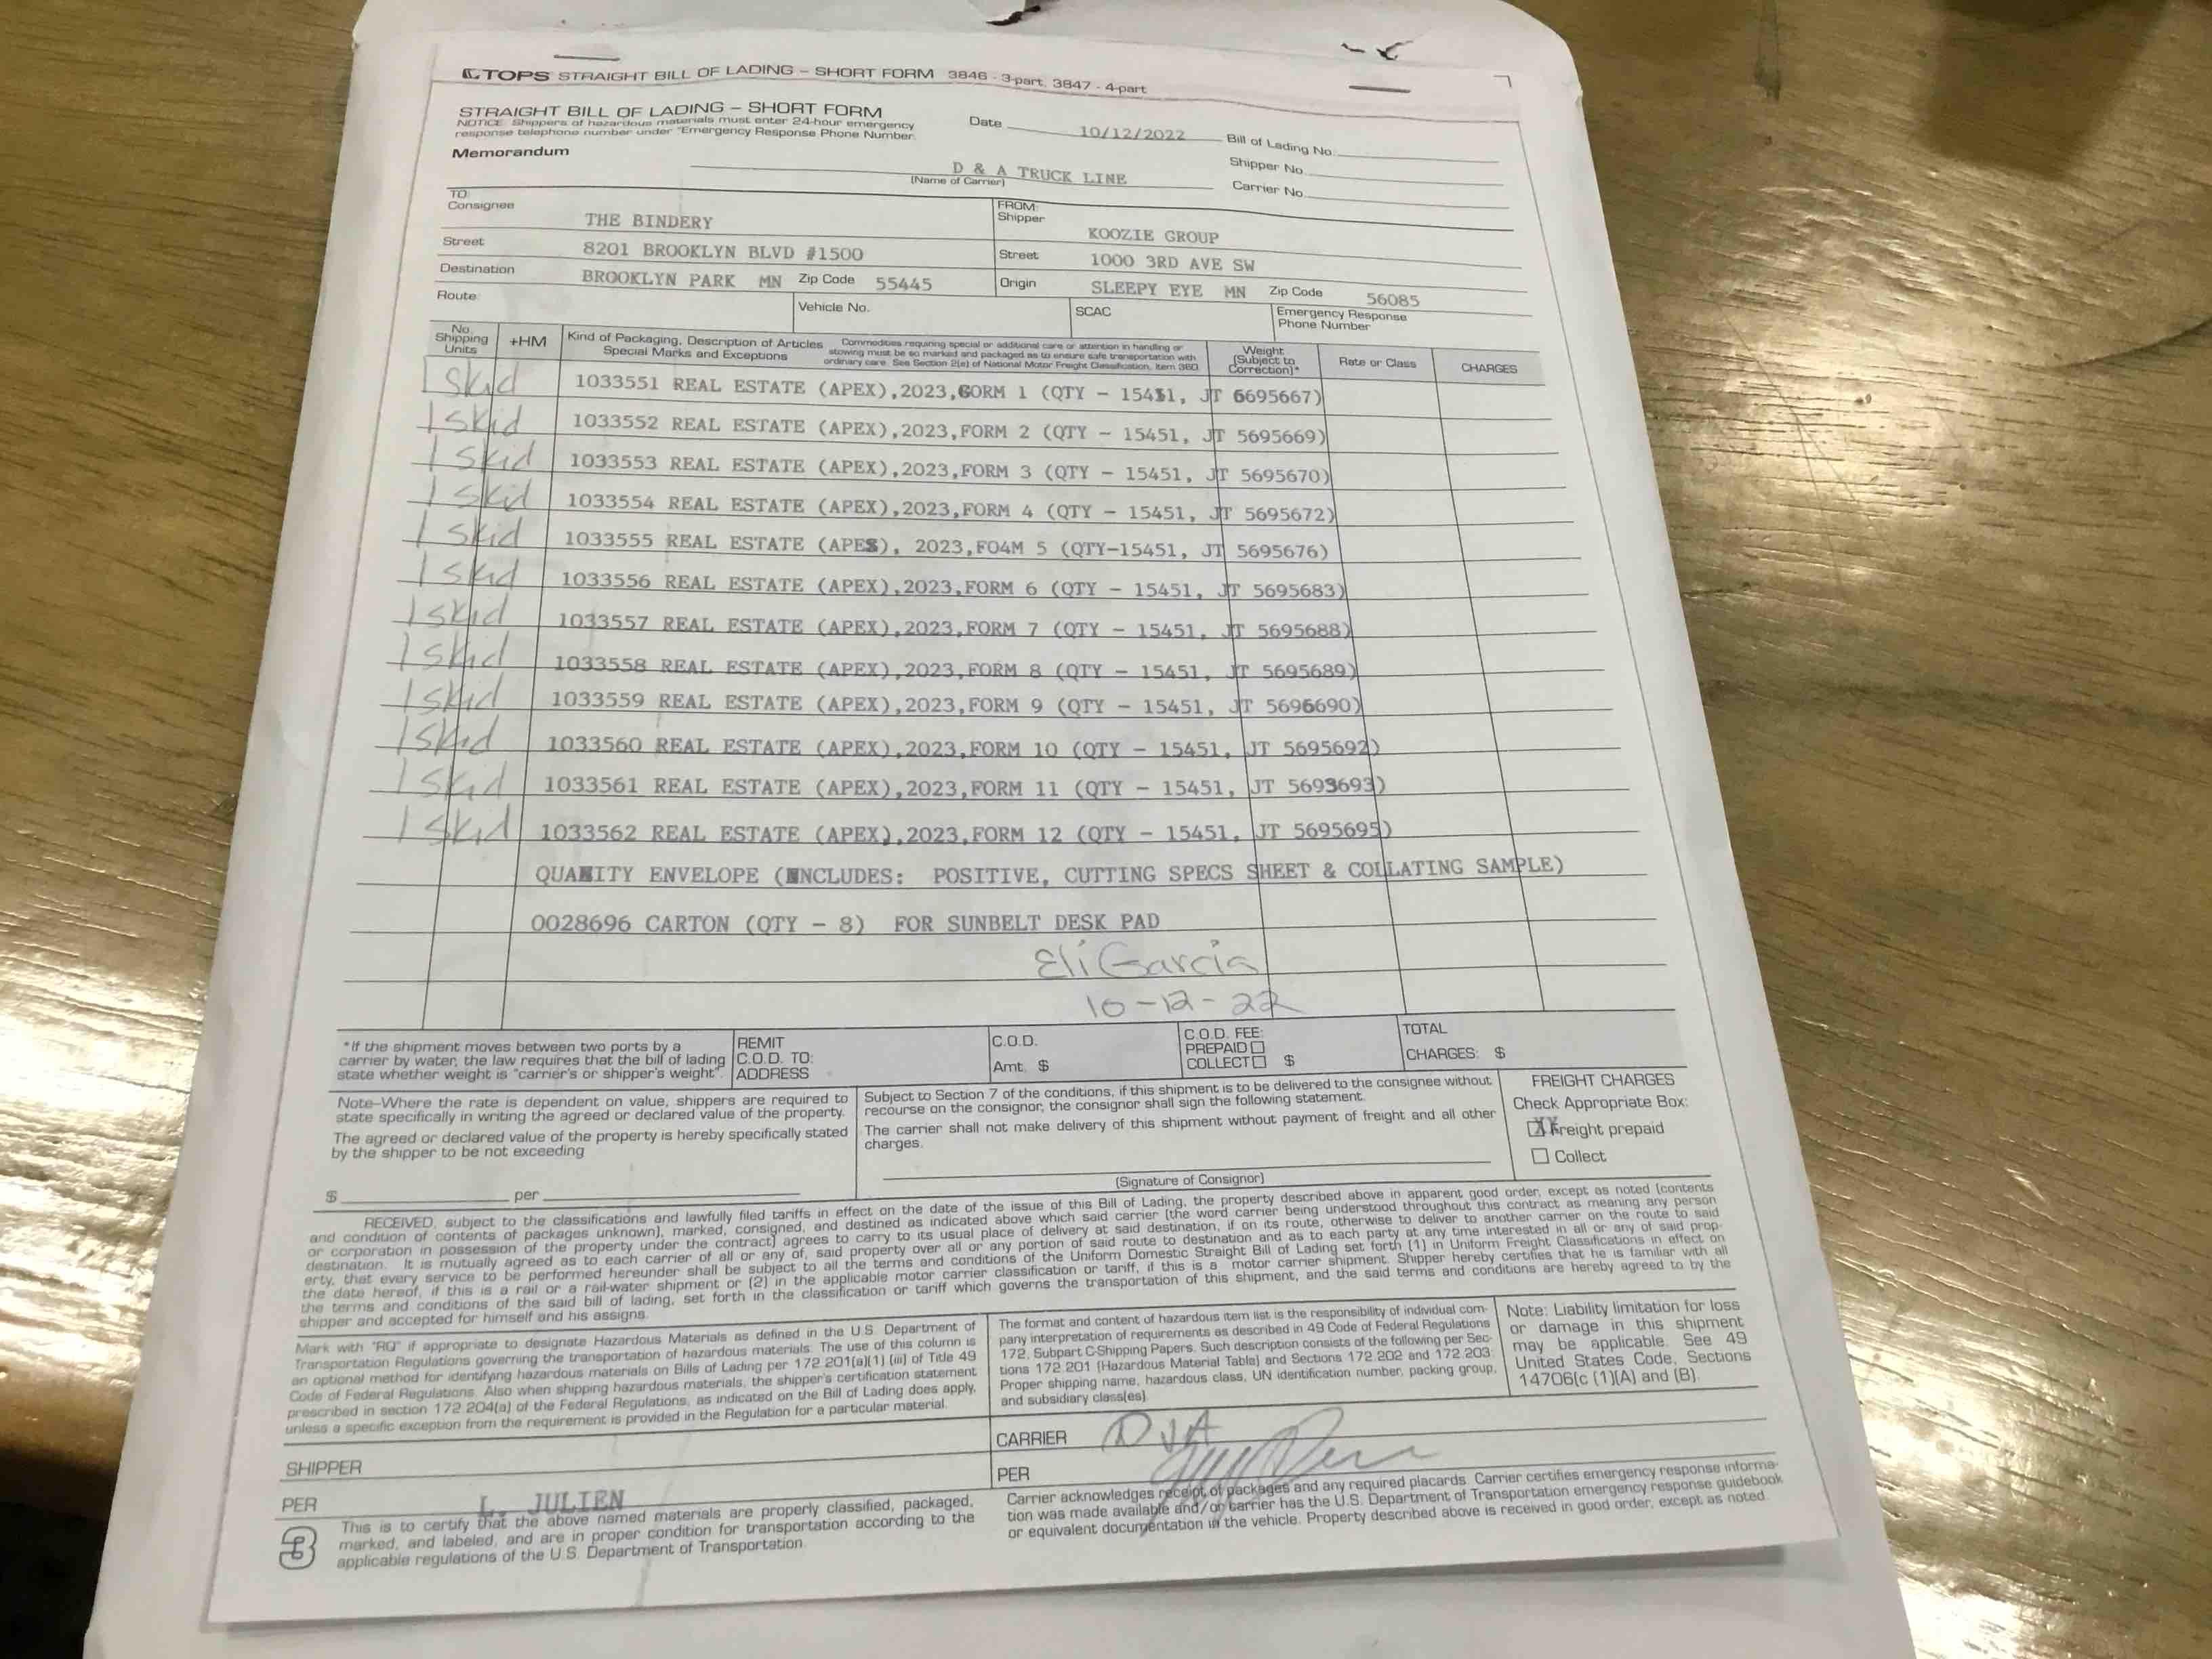 TOPS STRAIGHT BILL OF LADING – SHORT FORM 3846 - 3-part, 3847 - 4-part
STRAIGHT BILL OF LADING – SHORT FORM
NOTICE: Shippers of hazardous materials must enter 24-hour emergency
response telephone number under "Emergency Response Phone Number.
Memorandum
Date 10/12/2022
D & A TRUCK LINE
(Name of Carrier)
Bill of Lading No.
Shipper No.
Carrier No.
TO:
Consignee THE BINDERY
Street 8201 BROOKLYN BLVD #1500
Destination BROOKLYN PARK MN Zip Code 55445
FROM:
Shipper KOOZIE GROUP
Street 1000 3RD AVE SW
Origin SLEEPY EYE MN Zip Code 56085
Route:
Vehicle No.
SCAC
Emergency Response
Phone Number
No.
Shipping
Units
+HM
Kind of Packaging, Description of Articles
Special Marks and Exceptions
Commodities requiring special or additional care or attention in handling or
stowing must be so marked and packaged as to ensure safe transportation with
ordinary care. See Section 2(e) of National Motor Freight Classification, Item 360.
Weight
(Subject to
Correction)*
Rate or Class
CHARGES
1 Skid 1033551 REAL ESTATE (APEX),2023,FORM 1 (QTY – 15451, JT 5695667)
1 Skid 1033552 REAL ESTATE (APEX),2023,FORM 2 (QTY – 15451, JT 5695669)
1 Skid 1033553 REAL ESTATE (APEX),2023,FORM 3 (QTY – 15451, JT 5695670)
1 Skid 1033554 REAL ESTATE (APEX),2023,FORM 4 (QTY – 15451, JT 5695672)
1 Skid 1033555 REAL ESTATE (APES), 2023,FO4M 5 (QTY-15451, JT 5695676)
1 Skid 1033556 REAL ESTATE (APEX),2023,FORM 6 (QTY – 15451, JT 5695683)
1 Skid 1033557 REAL ESTATE (APEX),2023,FORM 7 (QTY – 15451, JT 5695688)
1 Skid 1033558 REAL ESTATE (APEX),2023,FORM 8 (QTY – 15451, JT 5695689)
1 Skid 1033559 REAL ESTATE (APEX),2023,FORM 9 (QTY – 15451, JT 5695690)
1 Skid 1033560 REAL ESTATE (APEX),2023,FORM 10 (QTY – 15451, JT 5695692)
1 Skid 1033561 REAL ESTATE (APEX),2023,FORM 11 (QTY – 15451, JT 5695693)
1 Skid 1033562 REAL ESTATE (APEX),2023,FORM 12 (QTY – 15451, JT 5695695)
ENVELOPE (INCLUDES: POSITIVE, CUTTING SPECS SHEET & COLLATING SAMPLE)
0028696 CARTON (QTY – 8) FOR SUNBELT DESK PAD
Eli Garcia
10-12-22
*If the shipment moves between two ports by a
carrier by water, the law requires that the bill of lading
state whether weight is "carrier's or shipper's weight".
REMIT
C.O.D. TO:
ADDRESS
C.O.D.
Amt. $
C.O.D. FEE:
PREPAID
COLLECT $
TOTAL
CHARGES: $
Note–Where the rate is dependent on value, shippers are required to
state specifically in writing the agreed or declared value of the property.
The agreed or declared value of the property is hereby specifically stated
by the shipper to be not exceeding
$ per
Subject to Section 7 of the conditions, if this shipment is to be delivered to the consignee without
recourse on the consignor, the consignor shall sign the following statement.
The carrier shall not make delivery of this shipment without payment of freight and all other
charges.
(Signature of Consignor)
FREIGHT CHARGES
Check Appropriate Box:
XX Freight prepaid
Collect
RECEIVED, subject to the classifications and lawfully filed tariffs in effect on the date of the issue of this Bill of Lading, the property described above in apparent good order, except as noted (contents
and condition of contents of packages unknown), marked, consigned, and destined as indicated above which said carrier (the word carrier being understood throughout this contract as meaning any person
or corporation in possession of the property under the contract) agrees to carry to its usual place of delivery at said destination, if on its route, otherwise to deliver to another carrier on the route to said
destination. It is mutually agreed as to each carrier of all or any of, said property over all or any portion of said route to destination and as to each party at any time interested in all or any of said prop-
erty, that every service to be performed hereunder shall be subject to all the terms and conditions of the Uniform Domestic Straight Bill of Lading set forth (1) in Uniform Freight Classifications in effect on
the date hereof, if this is a rail or a rail-water shipment or (2) in the applicable motor carrier classification or tariff, if this is a motor carrier shipment. Shipper hereby certifies that he is familiar with all
the terms and conditions of the said bill of lading, set forth in the classification or tariff which governs the transportation of this shipment, and the said terms and conditions are hereby agreed to by the
shipper and accepted for himself and his assigns.
Mark with "RQ" if appropriate to designate Hazardous Materials as defined in the U.S. Department of
Transportation Regulations governing the transportation of hazardous materials. The use of this column is
an optional method for identifying hazardous materials on Bills of Lading per 172.201(a)(1) (iii) of Title 49
Code of Federal Regulations. Also when shipping hazardous materials, the shipper's certification statement
prescribed in section 172.204(a) of the Federal Regulations, as indicated on the Bill of Lading does apply,
unless a specific exception from the requirement is provided in the Regulation for a particular material.
The format and content of hazardous item list is the responsibility of individual com-
pany interpretation of requirements as described in 49 Code of Federal Regulations
172, Subpart C-Shipping Papers. Such description consists of the following per Sec-
tions 172.201 (Hazardous Material Table) and Sections 172.202 and 172.203:
Proper shipping name, hazardous class, UN identification number, packing group,
and subsidiary class(es).
Note: Liability limitation for loss
or damage in this shipment
may be applicable. See 49
United States Code, Sections
14706(c (1)(A) and (B).
SHIPPER
PER L. JULIEN
CARRIER
PER
3
This is to certify that the above named materials are properly classified, packaged,
marked, and labeled, and are in proper condition for transportation according to the
applicable regulations of the U.S. Department of Transportation.
Carrier acknowledges receipt of packages and any required placards. Carrier certifies emergency response informa-
tion was made available and/or carrier has the U.S. Department of Transportation emergency response guidebook
or equivalent documentation in the vehicle. Property described above is received in good order, except as noted.